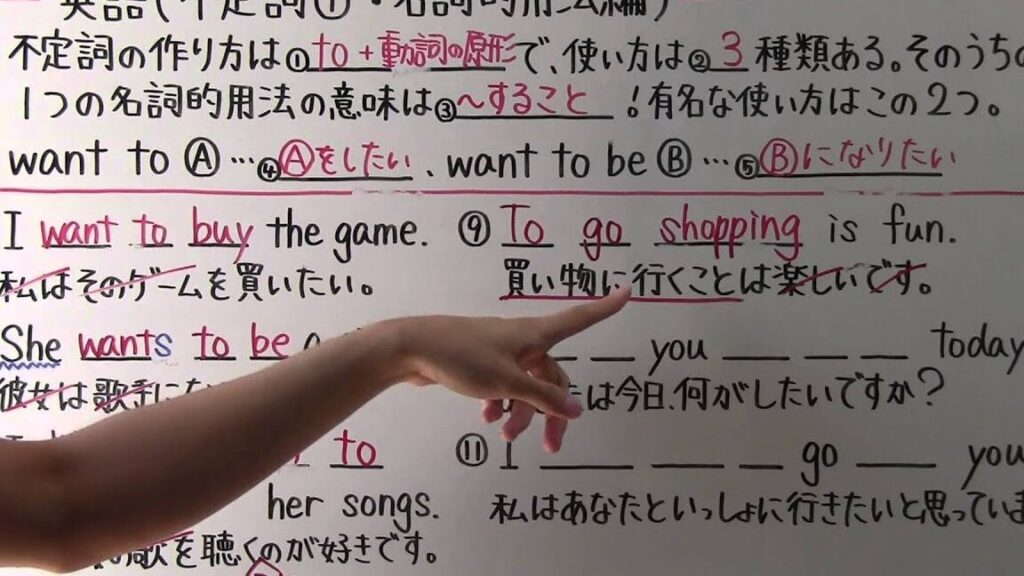 英語(不定詞①・名詞的用法編)
不定詞の作り方は①to+動詞の原形で、使い方は②3種類ある。そのうちの
1つの名詞的用法の意味は③～すること！有名な使い方はこの2つ。
want to Ⓐ…④Ⓐをしたい、want to be Ⓑ…⑤Ⓑになりたい
I want to buy the game.
私はそのゲームを買いたい。
She wants to be
彼女は歌手に
to
her songs.
歌を聴くのが好きです。
⑨ To go shopping is fun.
買い物に行くことは楽しいです。
you today
は今日、何がしたいですか？
⑪ I go you
私はあなたといっしょに行きたいと思っていま